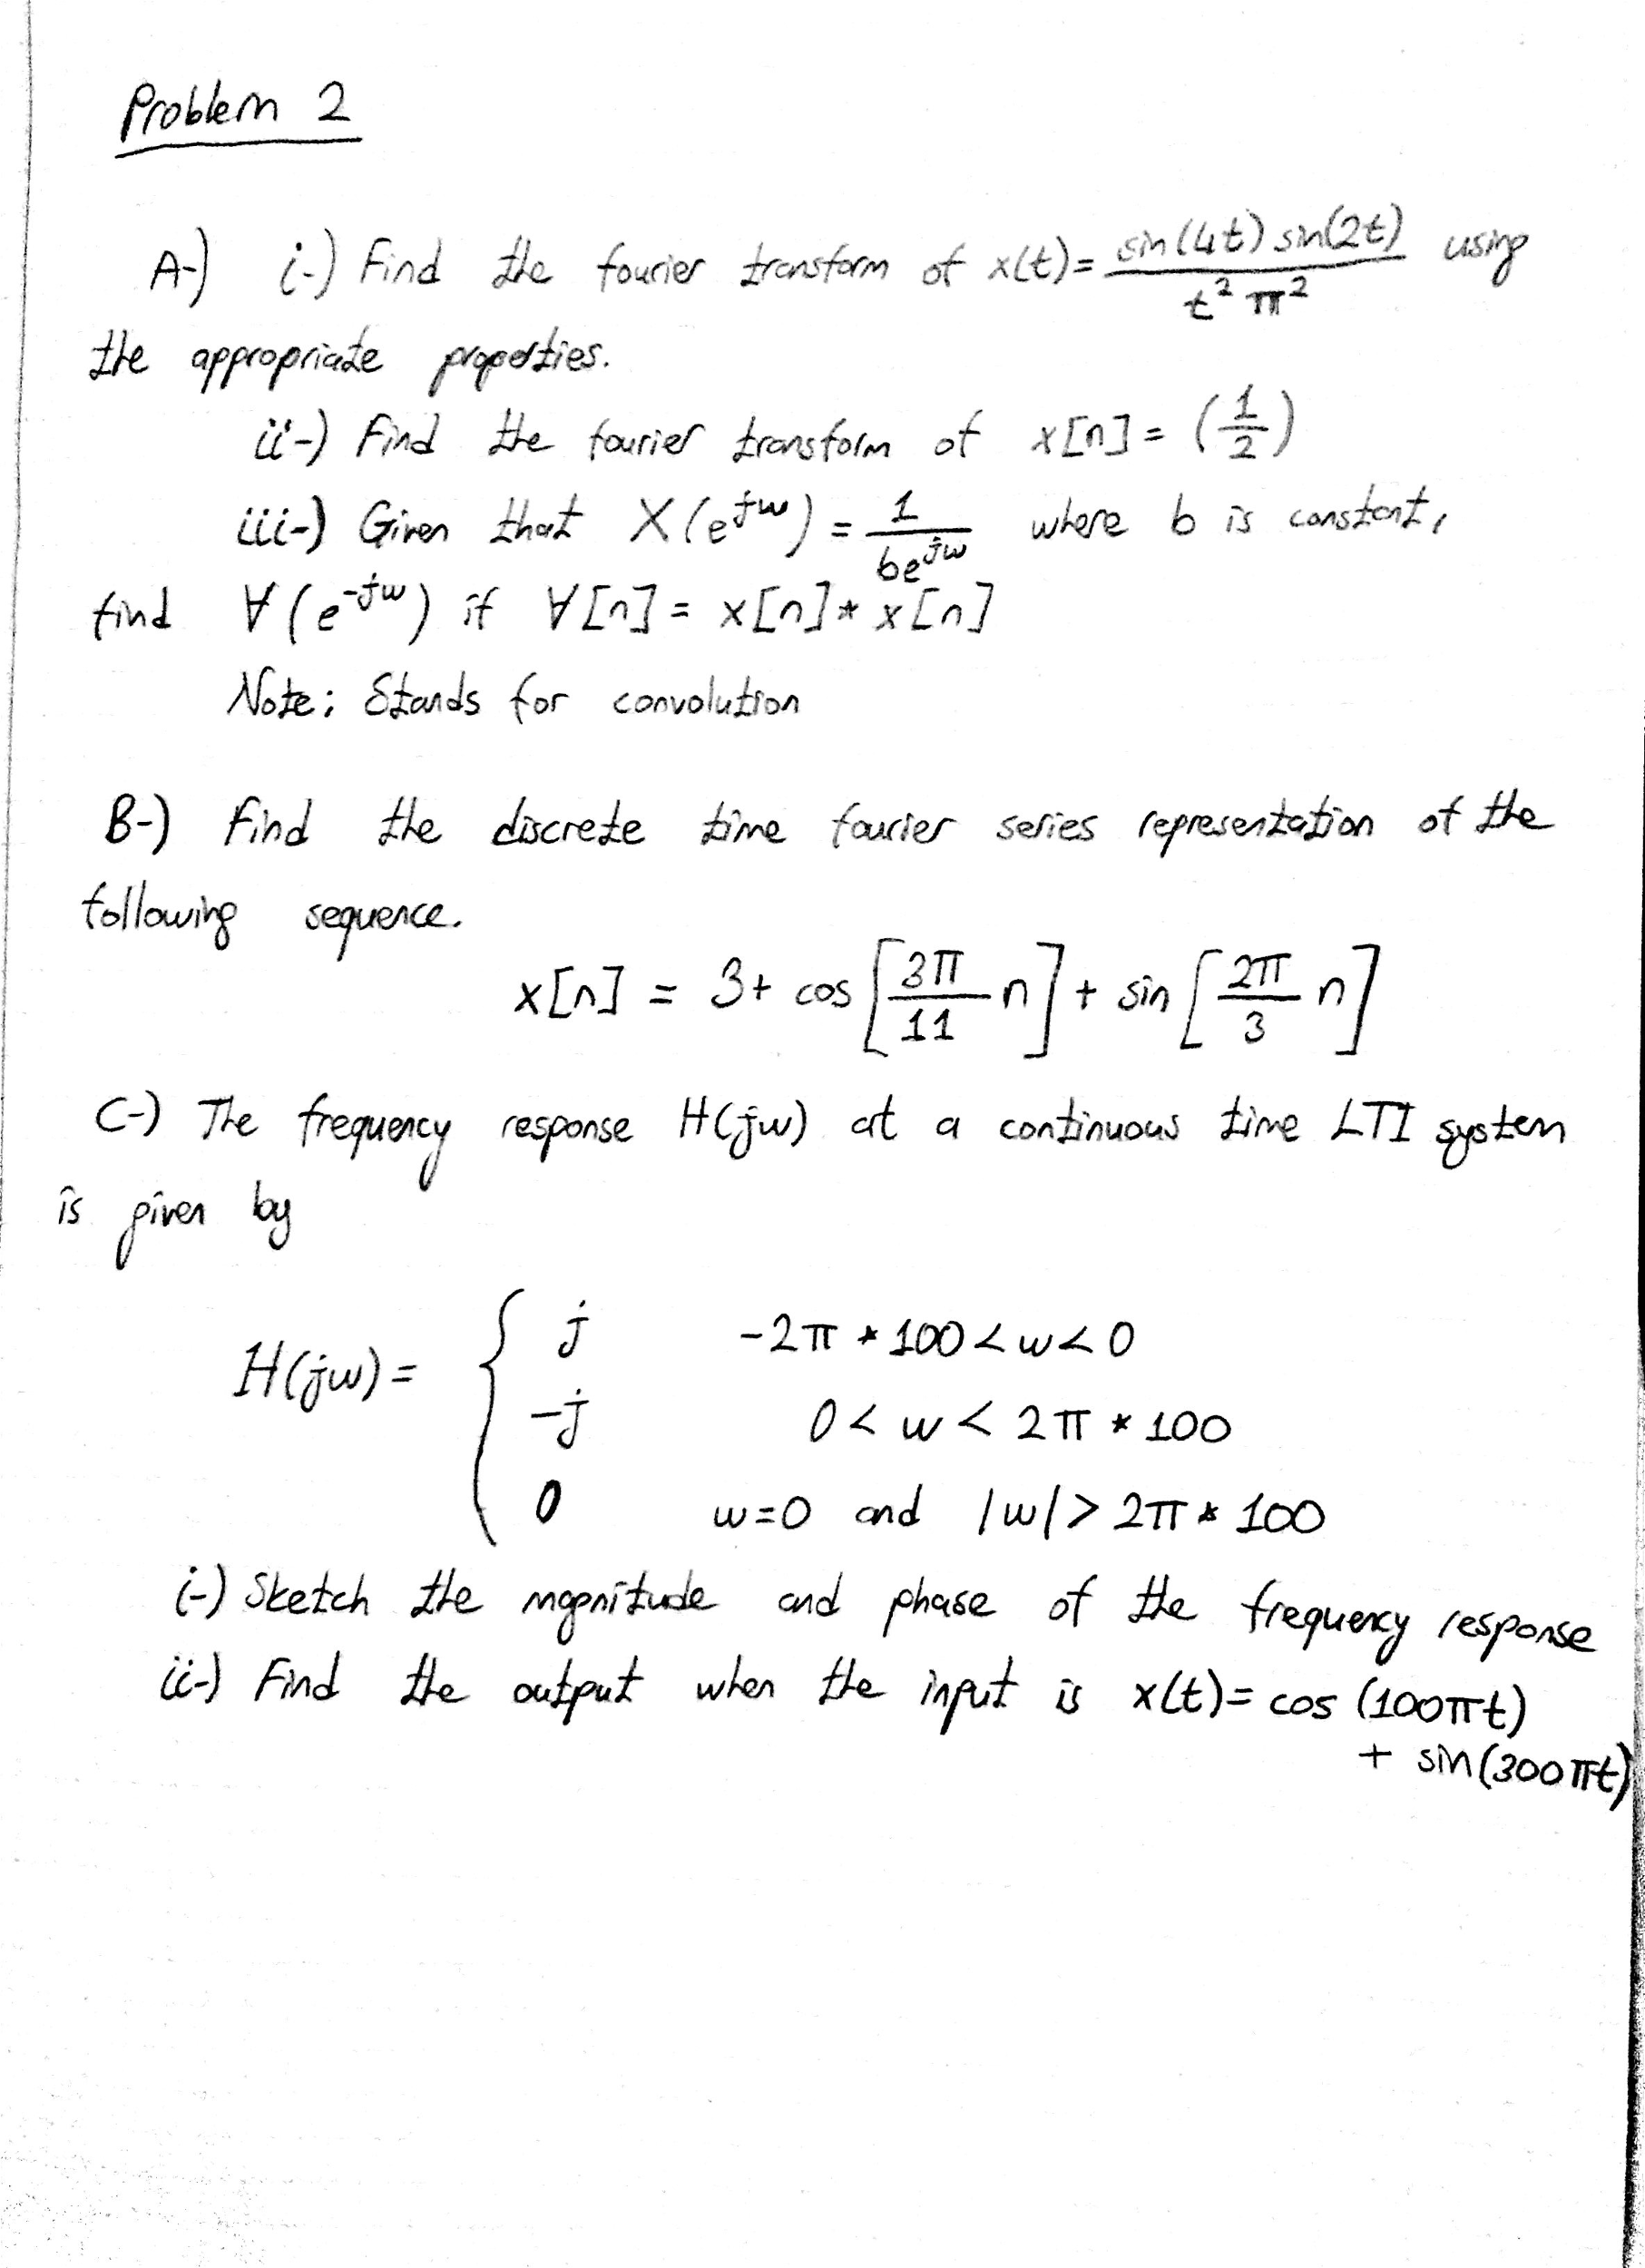 Problem 2
A-) i-) Find the fourier transform of x(t)= sin(4t) sin(2t) / t² π² using
the appropriate properties.
ii-) Find the fourier transform of x[n] = (1/2)
iii-) Given that X(e^jw) = 1/be^jw where b is constant,
find ∀(e^-jw) if ∀[n] = x[n]* x[n]
Note; Stands for convolution
B-) Find the discrete time fourier series representation of the
following sequence.
x[n] = 3+ cos [3π/11 n] + sin [2π/3 n]
C-) The frequency response H(jw) at a continuous time LTI system
is given by
H(jw) = { j -2π * 100 < w < 0
-j 0 < w < 2π * 100
0 w=0 and |w| > 2π * 100
i-) Sketch the magnitude and phase of the frequency response
ii-) Find the output when the input is x(t)= cos (100πt)
+ sin(300πt)